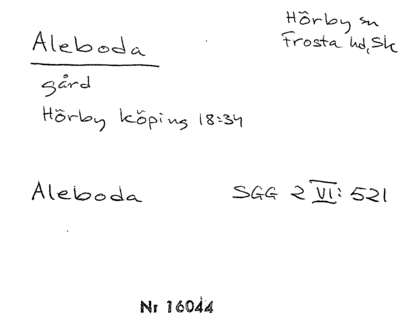 Aleboda
Hörby sn
Frosta hd, Sk
gård
Hörby köping 18:34
Aleboda SGG 2 VI: 521
Nr 16044